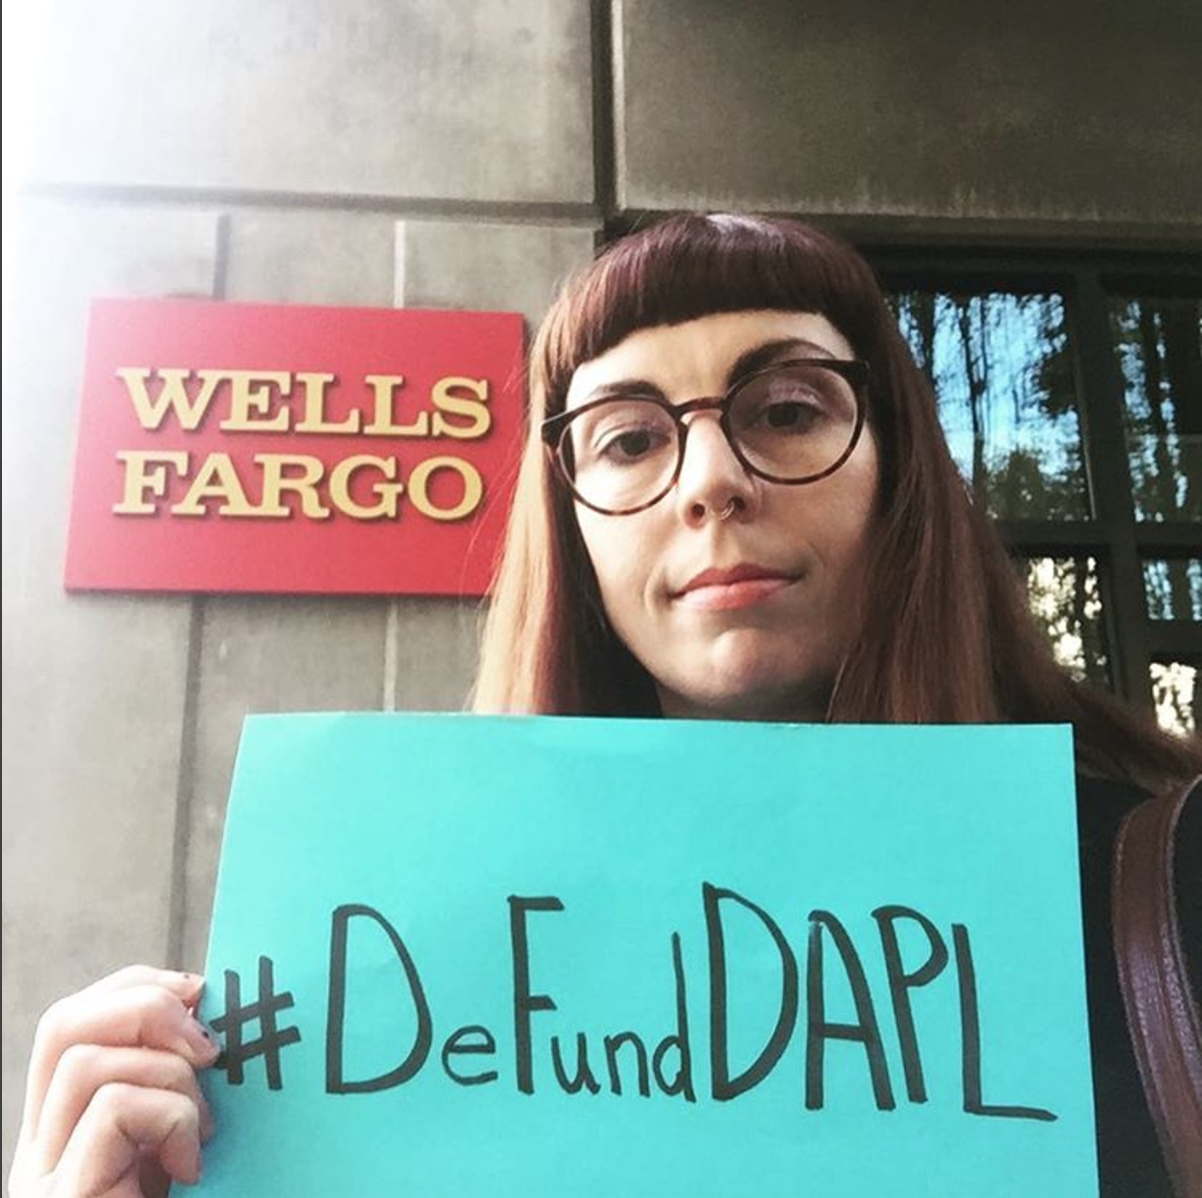 WELLS
FARGO
#DeFundDAPL